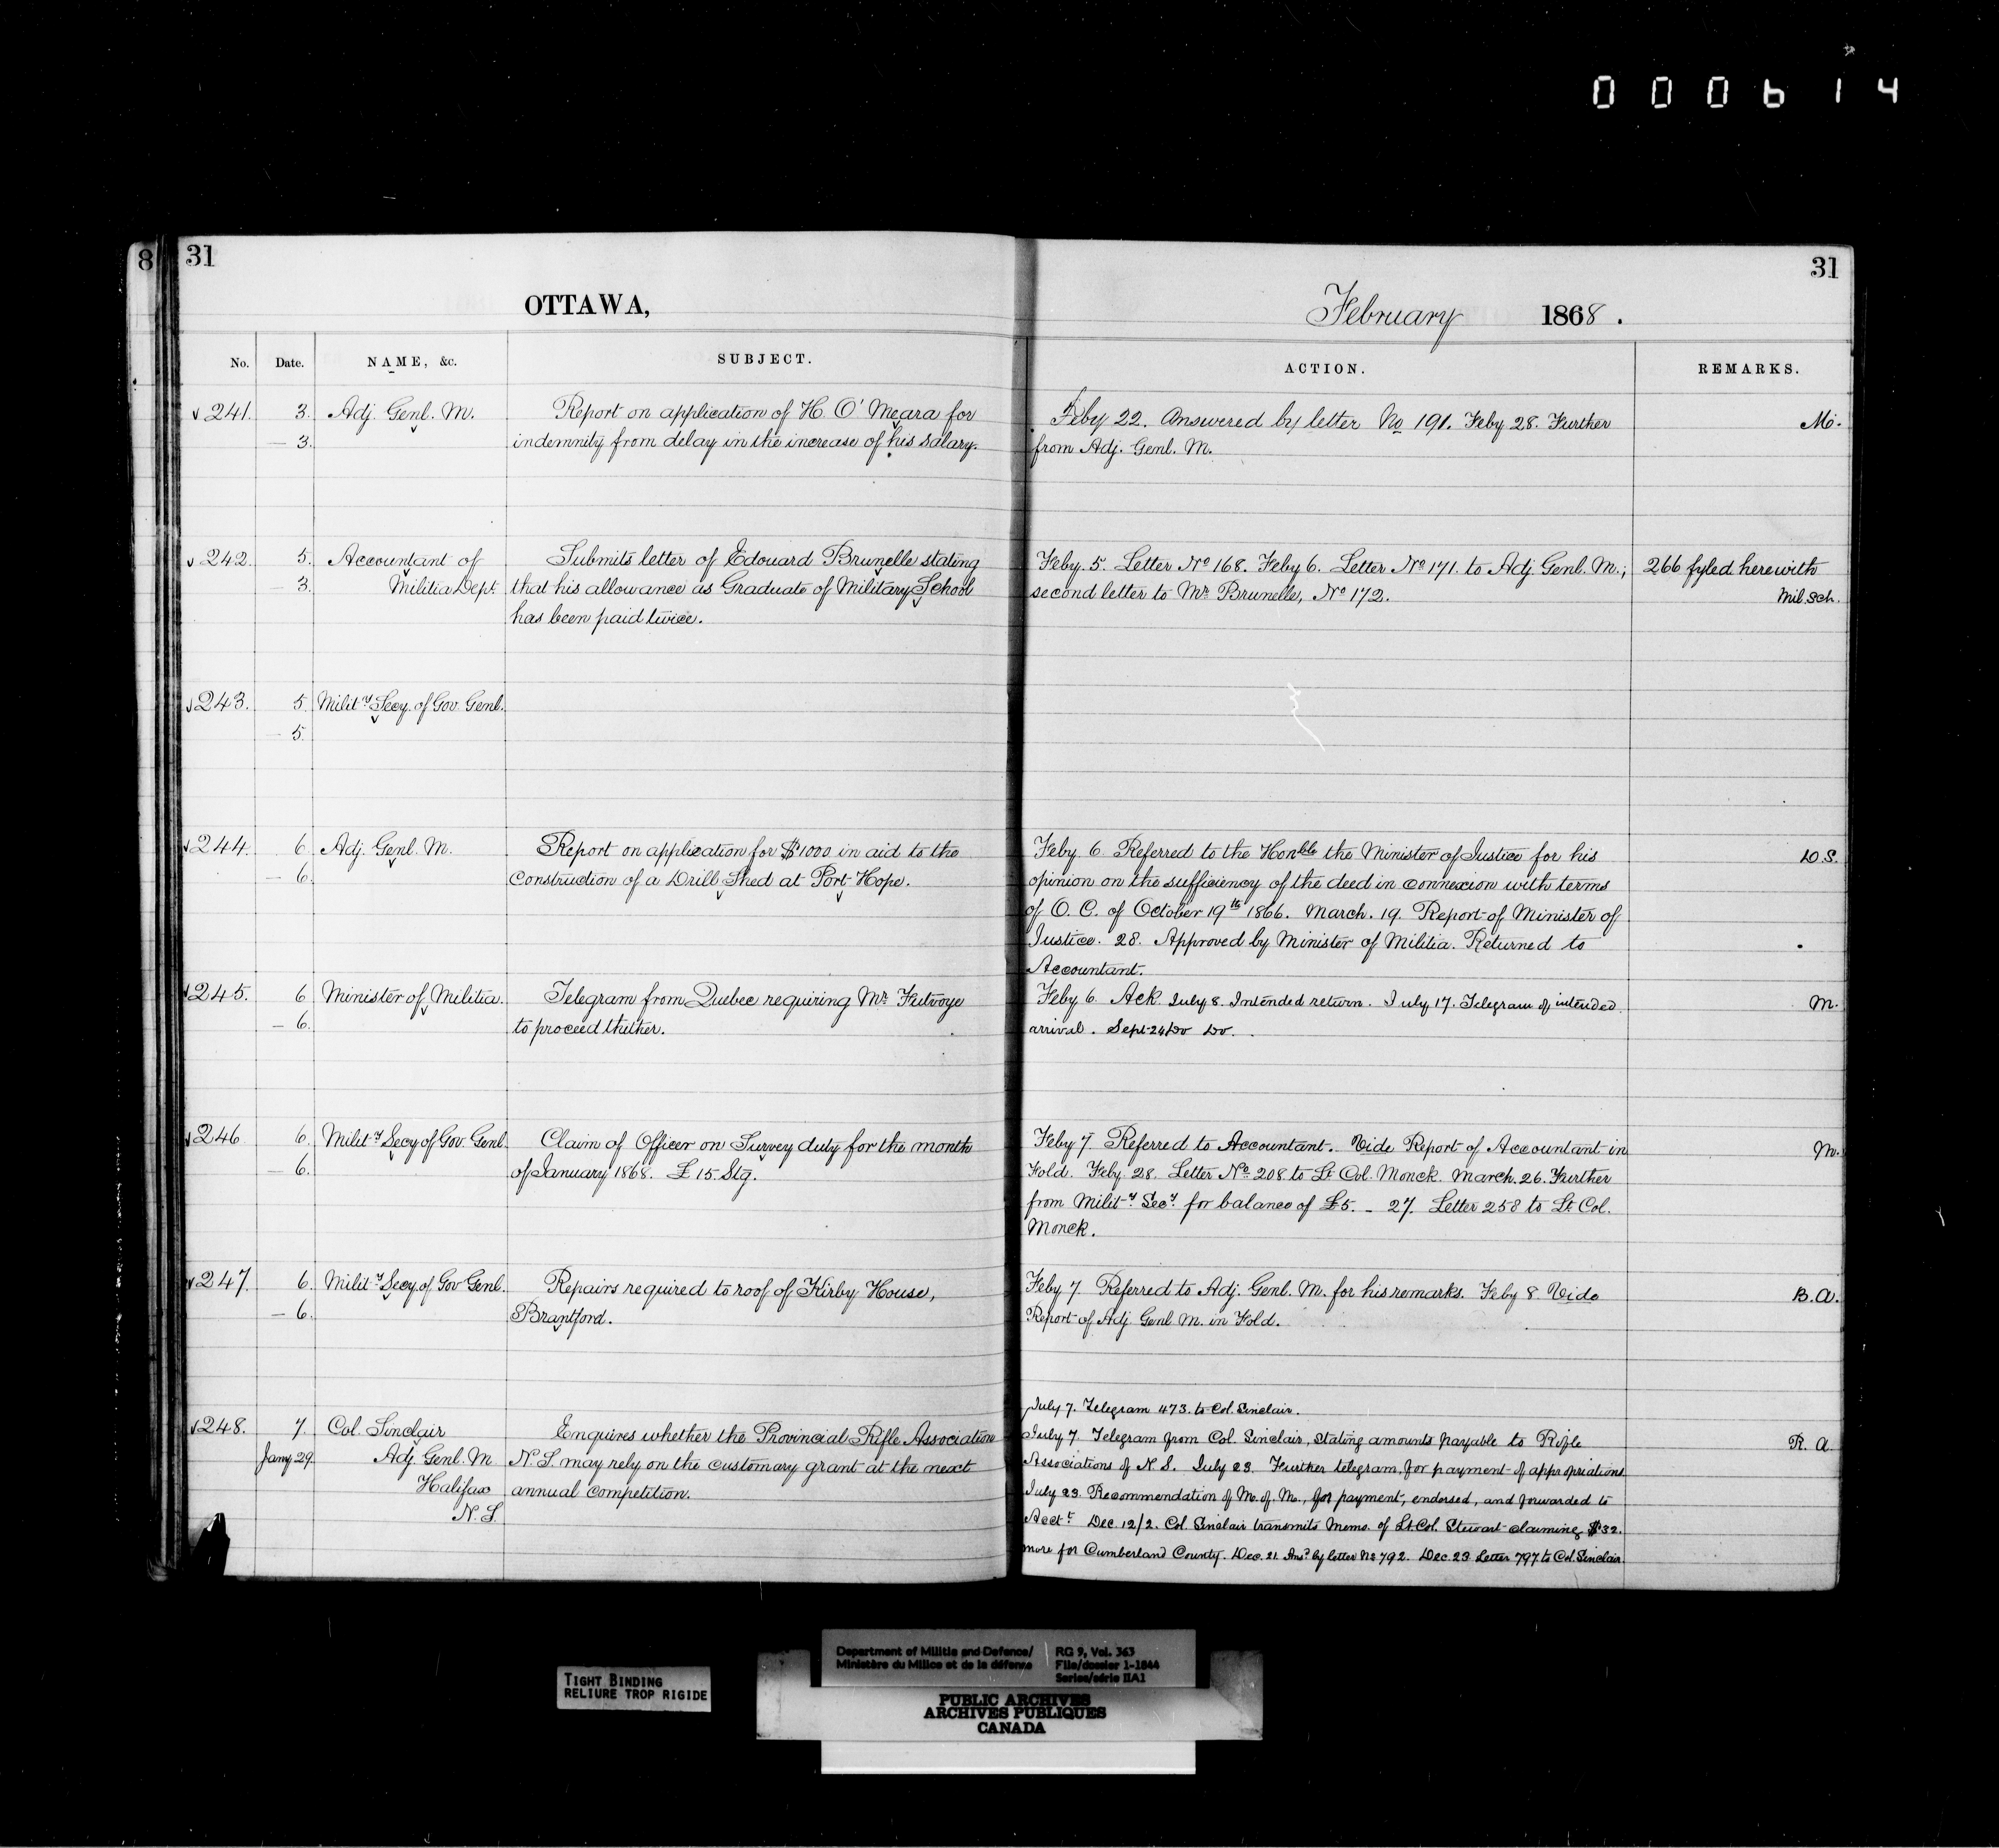 000614
8 31
31
OTTAWA,
February 1868.
No. Date. NAME, &c. SUBJECT.
ACTION. REMARKS.
241. 3. Adj. Genl. M. Report on application of H. O'Meara for
— 3. indemnity from delay in the increase of his salary.
Feby 22. Answered by letter No 191. Feby 28. Further M.
from Adj. Genl. M.
242. 5. Accountant of Submits letter of Edouard Brunelle stating
— 3. Militia Dept. that his allowance as Graduate of Military School
has been paid twice.
Feby. 5. Letter No 168. Feby 6. Letter No 171. to Adj. Genl. M.; 266 fyled herewith
second letter to Mr. Brunelle, No 172. Mil. Sch.
243. 5. Mility Secy. of Gov. Genl.
— 5.
244. 6. Adj. Genl. M. Report on application for $1000 in aid to the
— 6. Construction of a Drill Shed at Port Hope.
Feby. 6. Referred to the Honble the Minister of Justice for his D.S.
opinion on the sufficiency of the deed in connexion with terms
of O. C. of October 19th 1866. March. 19. Report of Minister of
Justice. 28. Approved by Minister of Militia. Returned to
Accountant.
245. 6 Minister of Militia. Telegram from Quebec requiring Mr. Futvoye
— 6. to proceed thither.
Feby 6. Ack. July 8. Intended return. July 17. Telegram of intended M.
arrival. Sept 24 Do Do.
246 6. Mility Secy of Gov. Genl. Claim of Officer on Survey duty for the month
— 6. of January 1868. £15. Stg.
Feby 7 Referred to Accountant. Vide Report of Accountant in M.
Fold. Feby. 28. Letter No. 208 to Lt. Col. Monck. March. 26. Further
from Mility. Secy. for balance of £5. - 27. Letter 258 to Lt. Col.
Monck.
247. 6. Mility Secy. of Gov Genl. Repairs required to roof of Kirby House,
— 6. Brantford.
Feby 7. Referred to Adj. Genl. M. for his remarks. Feby 8. Vide B.A.
Report of Adj. Genl M. in Fold.
July 7. Telegram 473. to Col. Sinclair.
248. 7. Col. Sinclair Enquires whether the Provincial Rifle Association
Jany 29. Adj. Genl. M N.S. may rely on the customary grant at the next
Halifax annual competition.
N.S.
July 7 Telegram from Col. Sinclair, stating amounts payable to Rifle R. A
Associations of N. S. July 23. Further telegram, for payment of appropriations.
July 23. Recommendation of M. of M., for payment, endorsed, and forwarded to
Acct. Dec. 12/2. Col. Sinclair transmits Memo. of Lt. Col. Stewart claiming $32.
more for Cumberland County. Dec. 21. Ansd by letter No 792. Dec 23 Letter 797 to Col. Sinclair.
TIGHT BINDING
RELIURE TROP RIGIDE
Department of Militia and Defence/ RG 9, Vol. 363
Ministère du Milice et de la défense File/dossier 1-1844
Series/série IIA1
PUBLIC ARCHIVES
ARCHIVES PUBLIQUES
CANADA